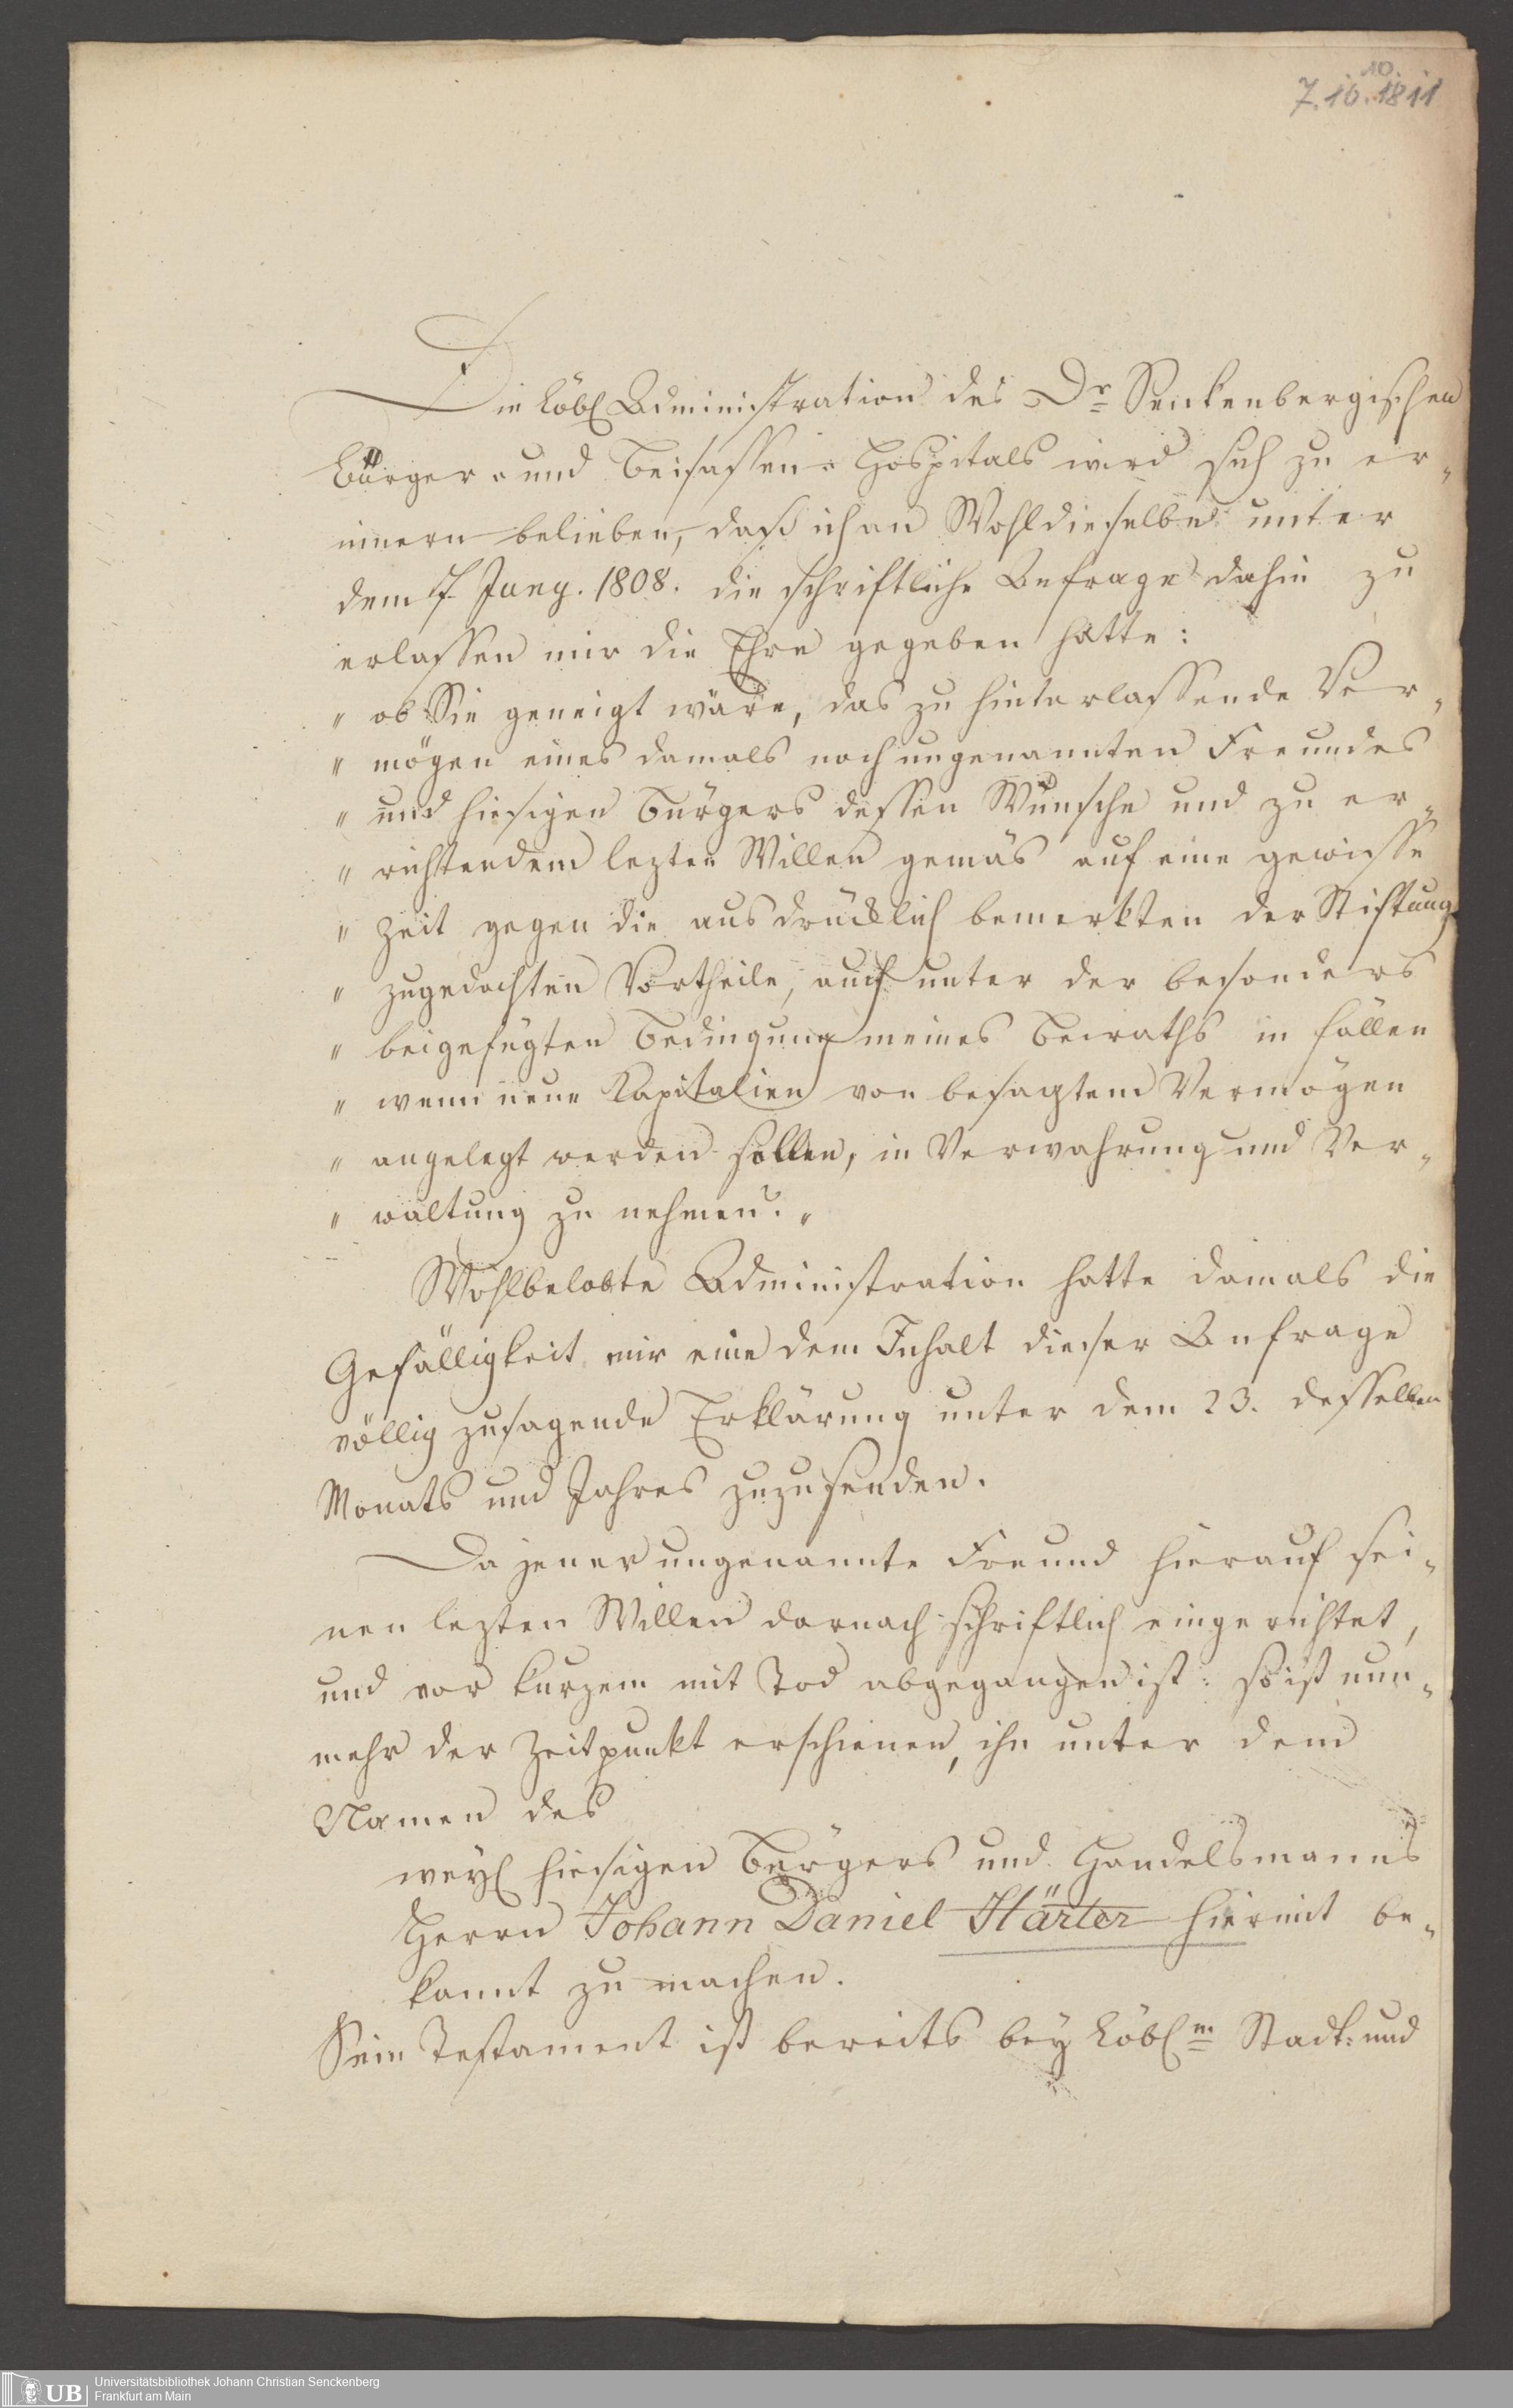 10.
7.10.1811
Die Löbl Administration des Dr Senkenbergischen
Bürger- und Beisassen-Hospitals wird sich zu er-
innern belieben, daß ich an Wohldieselbe unter
dem 7. Juny. 1808. die schriftliche Anfrage dahin zu
erlassen mir die Ehre gegeben hatte:
" ob Sie geneigt wäre, das zu hinterlassende Ver-
" mögen eines damals noch ungenannten Freundes
" und hiesigen Bürgers dessen Wunsche und zu er-
" richtendem lezten Willen gemäs auf eine gewisse
" Zeit gegen die ausdrücklich bemerkten der Stiftung
" zugedachten Vortheile, auch unter der besonders
" beigefügten Bedingung meines Beiraths in fällen
" wenn neue Kapitalien von besagtem Vermögen
" angelegt werden sollen, in Verwahrung und Ver-
" waltung zu nehmen. "
Wohlbelobte Administration hatte damals die
Gefälligkeit mir eine dem Inhalt dieser Anfrage
völlig zusagende Erklärung unter dem 23. desselben
Monats und Jahres zuzusenden.
Da jener ungenannte Freund hierauf sei-
nen lezten Willen darnach schriftlich eingerichtet,
und vor kurzem mit Tod abgegangen ist: so ist nun-
mehr der Zeitpunkt erschienen, ihn unter dem
Namen des
weyl hiesigen Bürgers und Handelsmanns
Herrn Johann Daniel Härter hiermit be-
kannt zu machen.
Sein Testament ist bereits bey Löbl m Stadt- und
UB Universitätsbibliothek Johann Christian Senckenberg
Frankfurt am Main